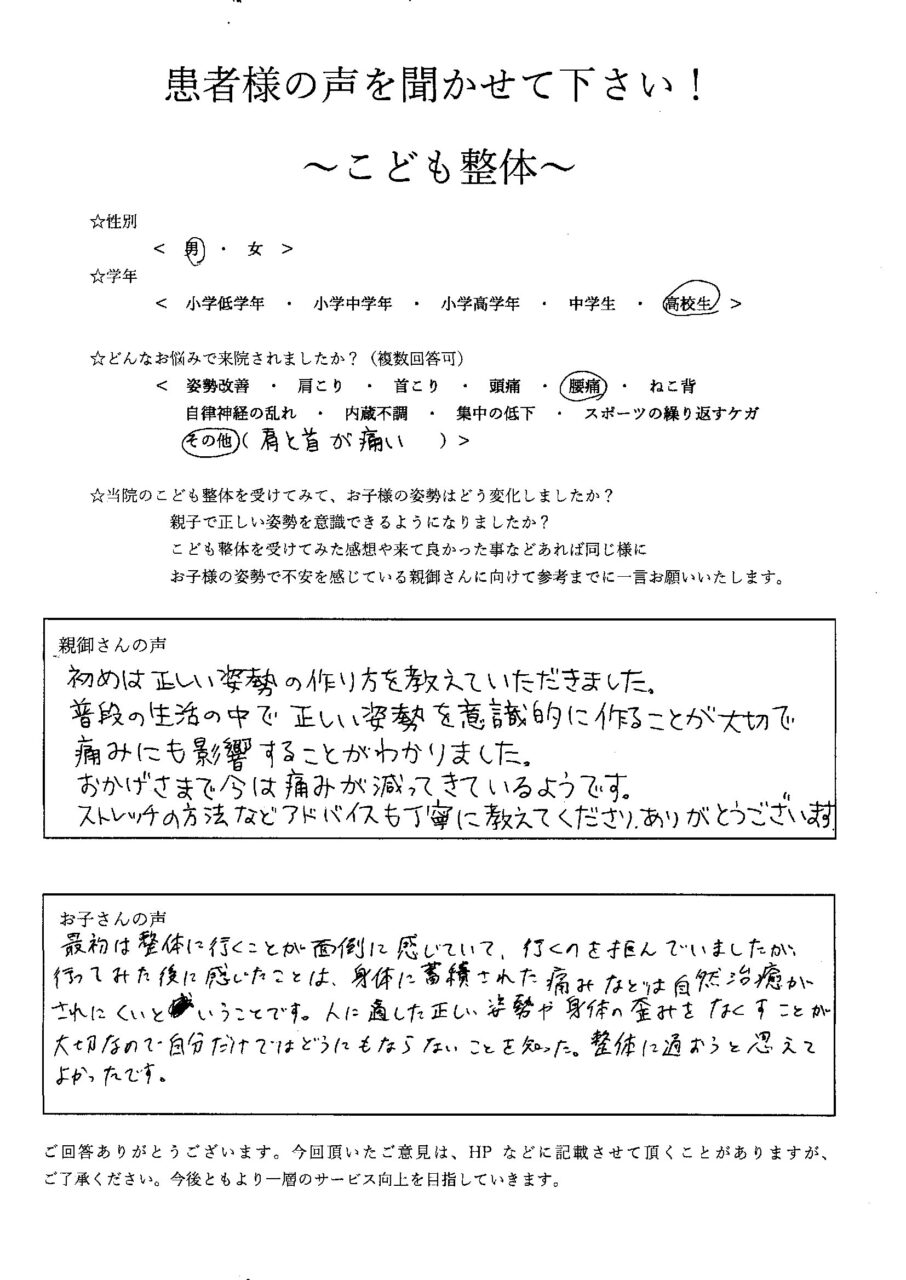 患者様の声を聞かせて下さい！
～こども整体～
☆性別
＜　男　・　女　＞
☆学年
＜　小学低学年　・　小学中学年　・　小学高学年　・　中学生　・　高校生　＞
☆どんなお悩みで来院されましたか？（複数回答可）
＜　姿勢改善　・　肩こり　・　首こり　・　頭痛　・　腰痛　・　ねこ背
自律神経の乱れ　・　内蔵不調　・　集中の低下　・　スポーツの繰り返すケガ
その他（肩と首が痛い　　）＞
☆当院のこども整体を受けてみて、お子様の姿勢はどう変化しましたか？
親子で正しい姿勢を意識できるようになりましたか？
こども整体を受けてみた感想や来て良かった事などあれば同じ様に
お子様の姿勢で不安を感じている親御さんに向けて参考までに一言お願いいたします。
親御さんの声
初めは正しい姿勢の作り方を教えていただきました。
普段の生活の中で正しい姿勢を意識的に作ることが大切で
痛みにも影響することがわかりました。
おかげさまで今は痛みが減ってきているようです。
ストレッチの方法などアドバイスも丁寧に教えてくださり、ありがとうございます。
お子さんの声
最初は整体に行くことが面倒に感じていて、行くのを拒んでいましたが、
行ってみた後に感じたことは、身体に蓄積された痛みなどは自然治癒が
されにくいということです。人に適した正しい姿勢や身体の歪みをなくすことが
大切なので自分だけではどうにもならないことを知った。整体に通おうと思えて
よかったです。
ご回答ありがとうございます。今回頂いたご意見は、HP などに記載させて頂くことがありますが、
ご了承ください。今後ともより一層のサービス向上を目指していきます。